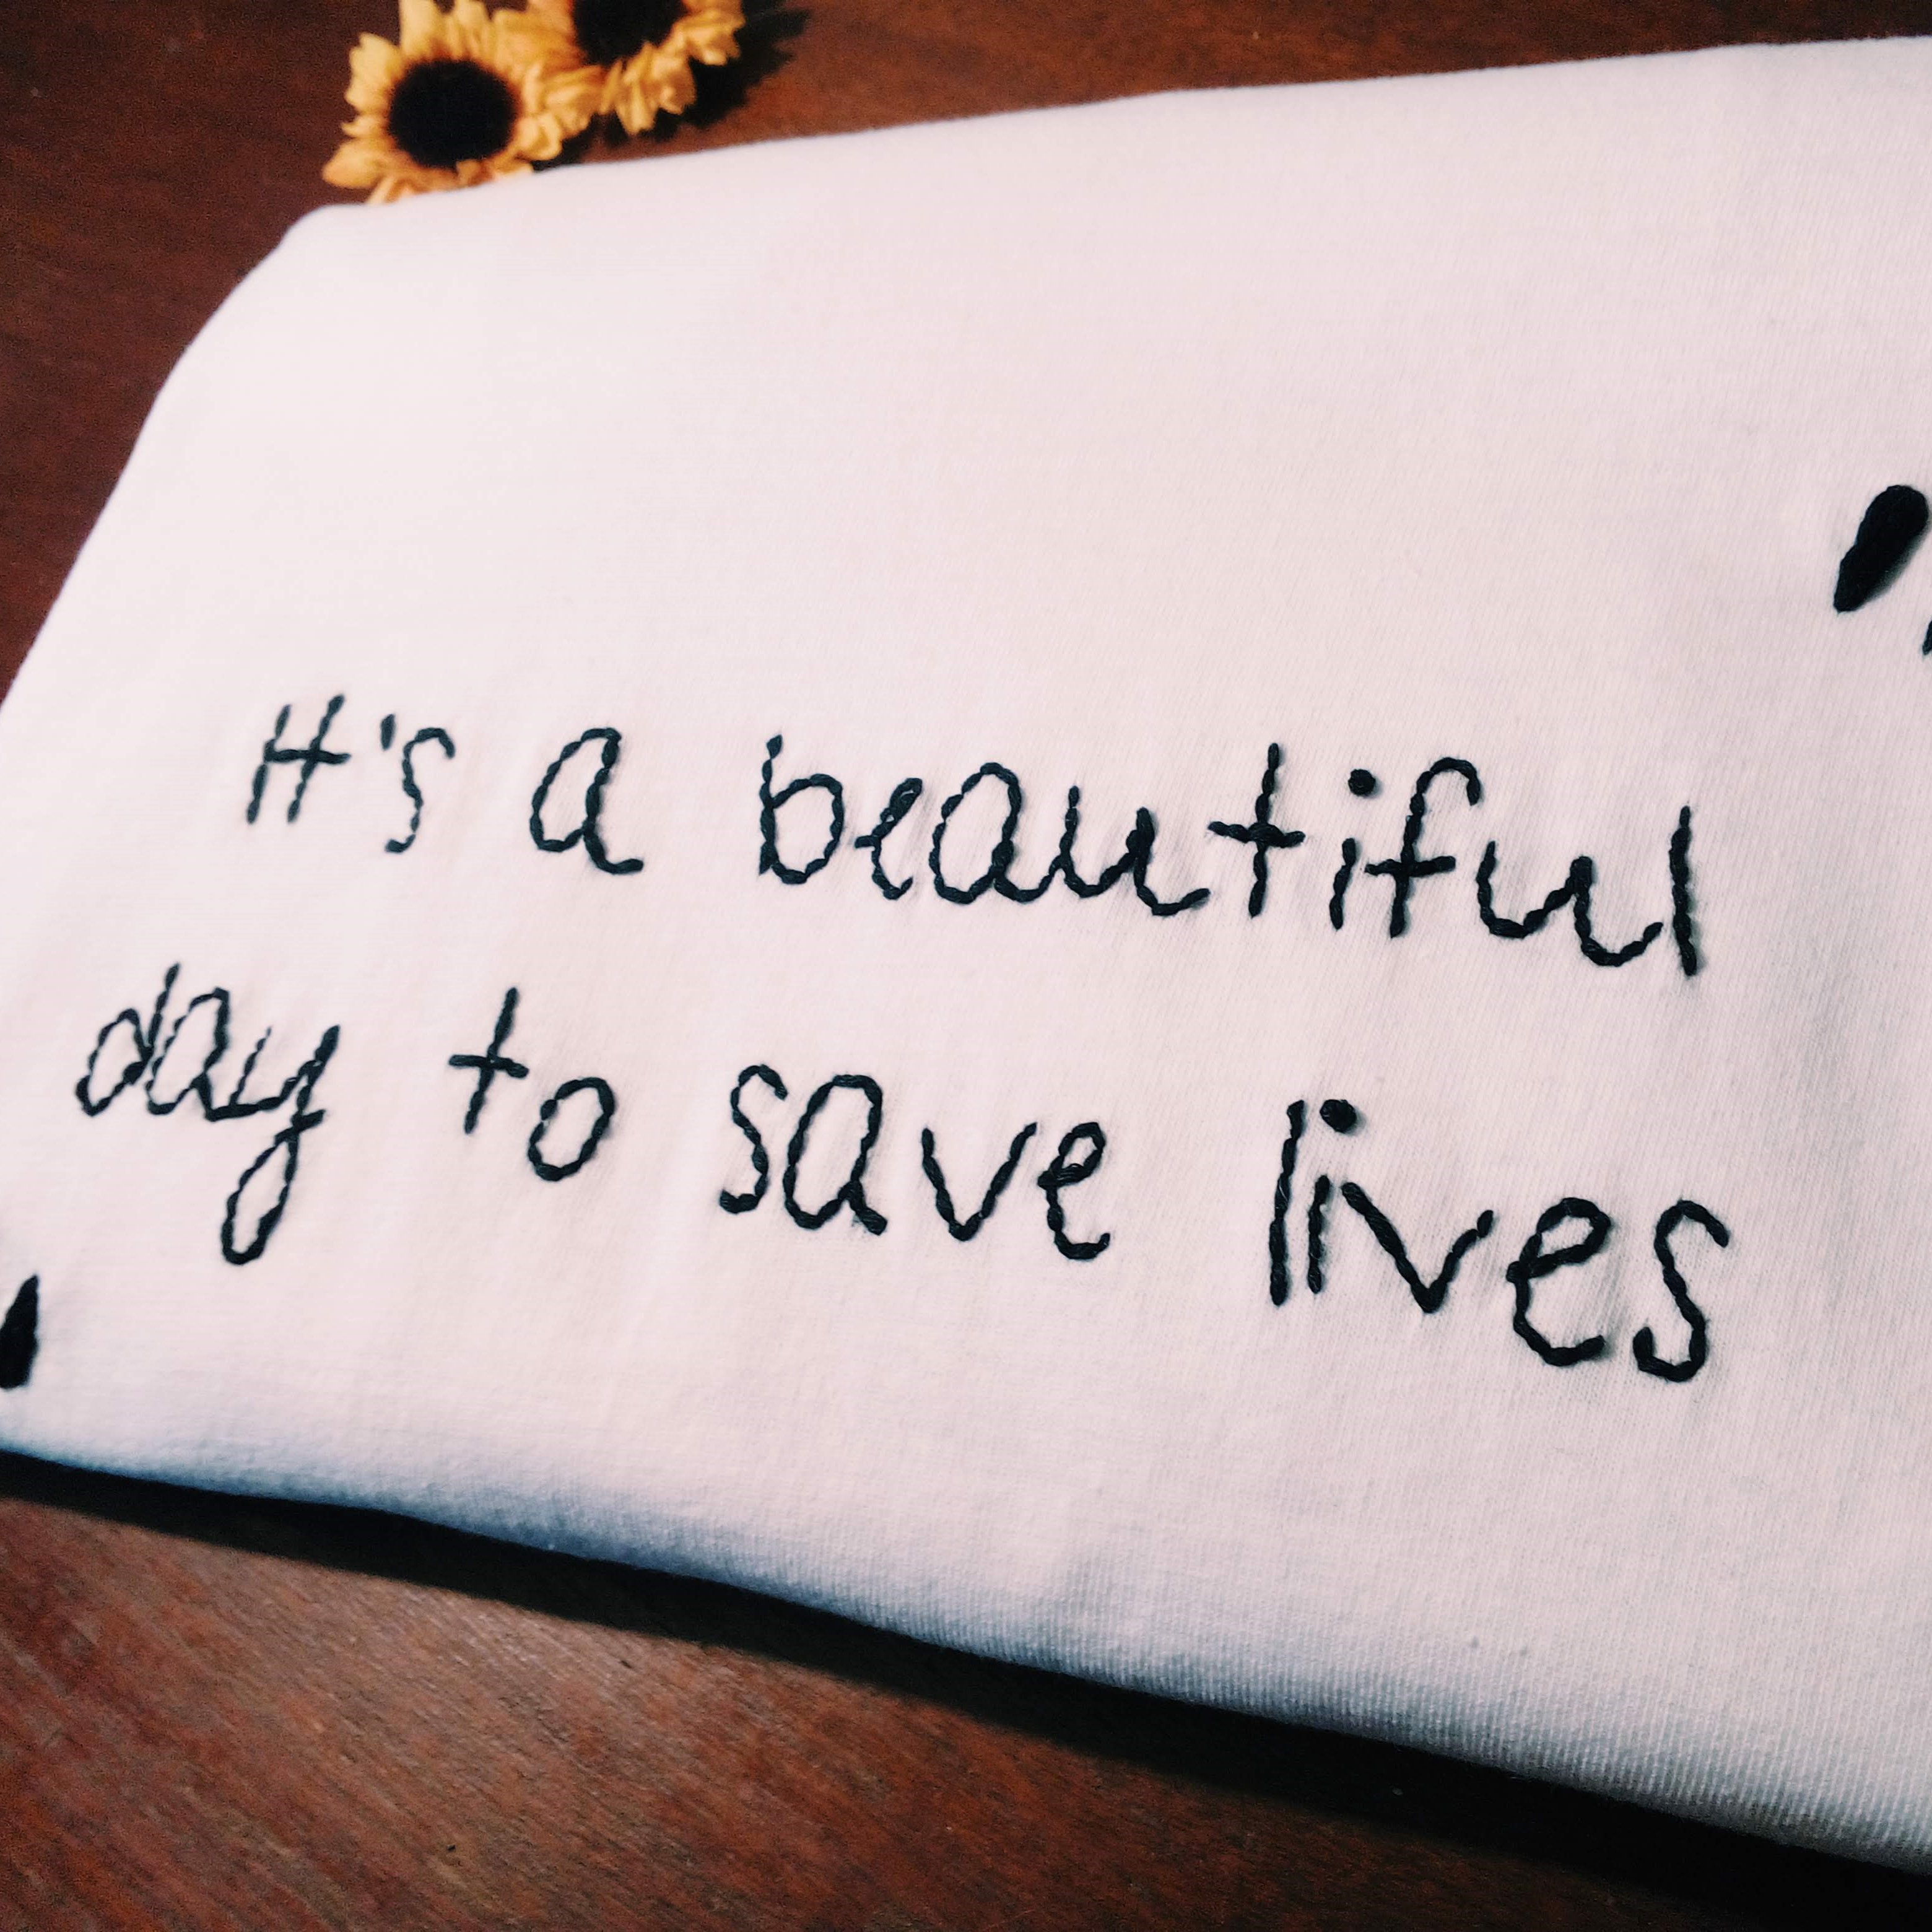 It's a beautiful
day to save lives